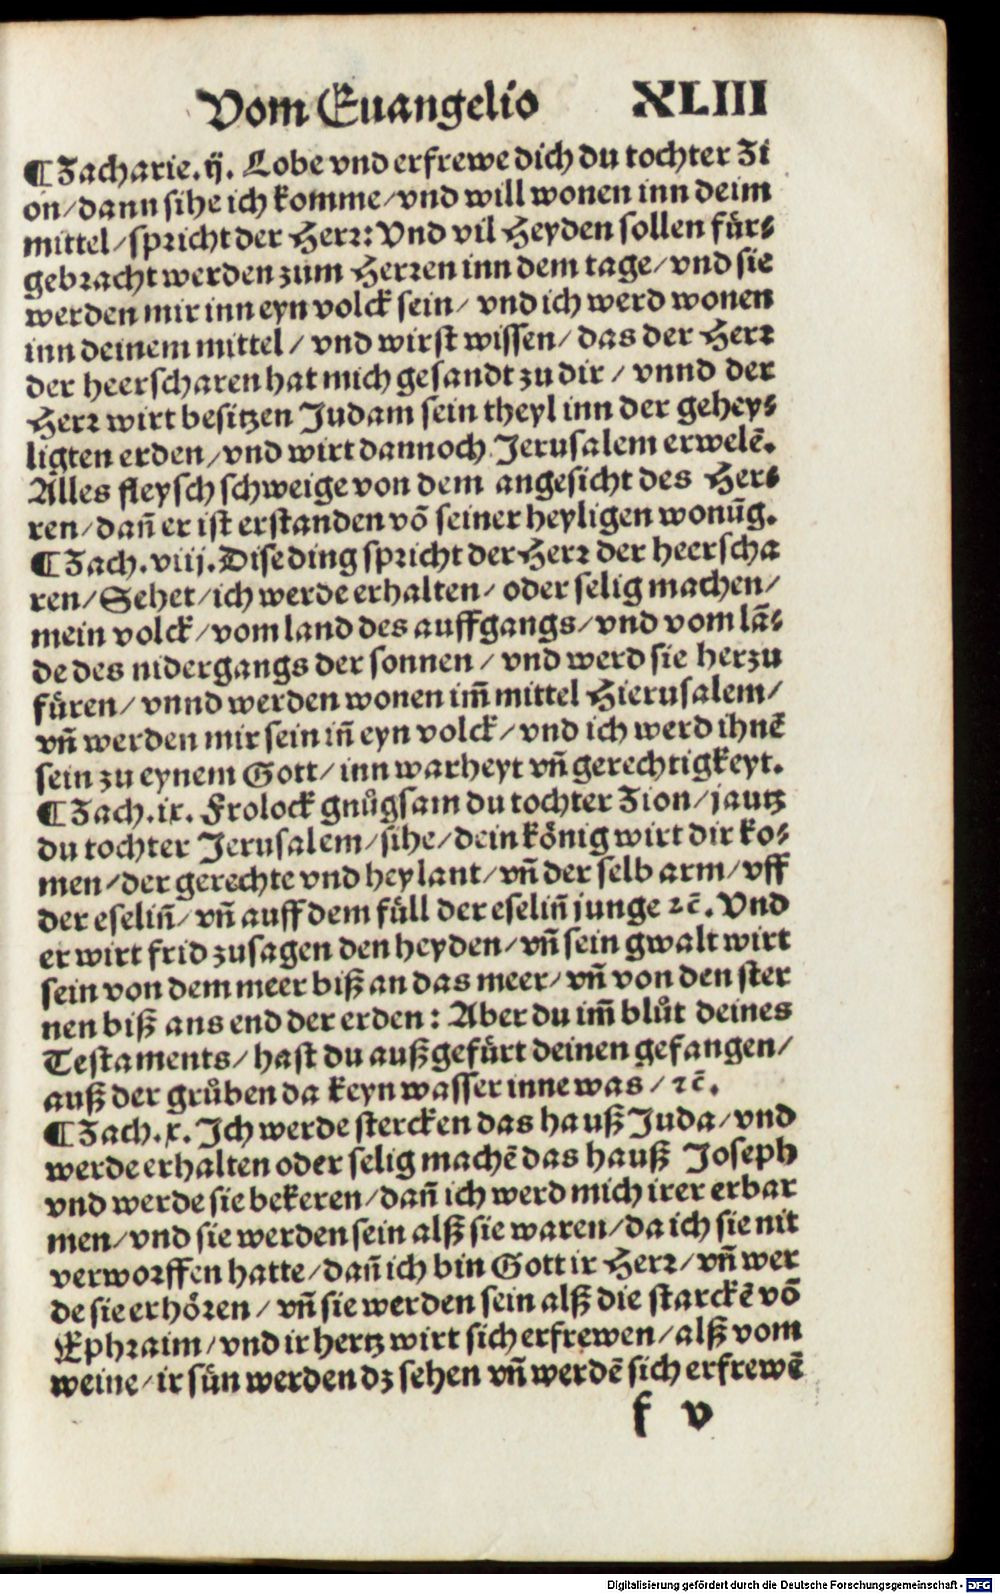 Vom Euangelio XLIII
¶Zacharie.ij. Lobe vnd erfrewe dich du tochter Zi
on/dann sihe ich komme/vnd will wonen inn deim
mittel/spricht der Herr: Vnd vil Heyden sollen für⸗
gebracht werden zům Herren inn dem tage/vnd sie
werden mir inn eyn volck sein/ vnd ich werd wonen
inn deinem mittel/ vnd wirst wissen/ das der Herr
der heerscharen hat mich gesandt zu dir/ vnnd der
Herr wirt besitzen Judam sein theyl inn der gehey⸗
ligten erden/vnd wirt dannoch Jerusalem erwelē.
Alles fleysch schweige von dem angesicht des Her⸗
ren/dañ er ist erstanden võ seiner heyligen wonũg.
¶Zach.viij. Dise ding spricht der Herr der heerscha
ren/Sehet/ich werde erhalten/ oder selig machen/
mein volck/vom land des auffgangs/vnd vom lã⸗
de des nidergangs der sonnen/ vnd werd sie herzu
füren/ vnnd werden wonen im̃ mittel Hierusalem/
vñ werden mir sein iñ eyn volck/vnd ich werd ihnē
sein zu eynem Gott/inn warheyt vñ gerechtigkeyt.
¶Zach.ix. Frolock gnůgsam du tochter Zion/jautz
du tochter Jerusalem/sihe/dein könig wirt dir ko⸗
men/der gerechte vnd heylant/vñ der selb arm/vff
der eseliñ/vñ auff dem füll der eseliñ junge ⁊c̄. Vnd
er wirt frid zusagen den heyden/vñ sein gwalt wirt
sein von dem meer biß an das meer/vñ von den ster
nen biß ans end der erden: Aber du im̃ blůt deines
Testaments/hast du außgefürt deinen gefangen/
auß der grůben da keyn wasser inne was/⁊c̄.
¶Zach.x. Ich werde stercken das hauß Juda/vnd
werde erhalten oder selig machē das hauß Joseph
vnd werde sie bekeren/dañ ich werd mich irer erbar
men/vnd sie werden sein alß sie waren/da ich sie nit
verworffen hatte/dañ ich bin Gott ir Herr/vñ wer
de sie erhören/vñ sie werden sein alß die starckē võ
Ephraim/vnd ir hertz wirt sich erfrewen/alß vom
weine/ir sün werden dz sehen vñ werdē sich erfrewē
f v
Digitalisierung gefördert durch die Deutsche Forschungsgemeinschaft - DFG